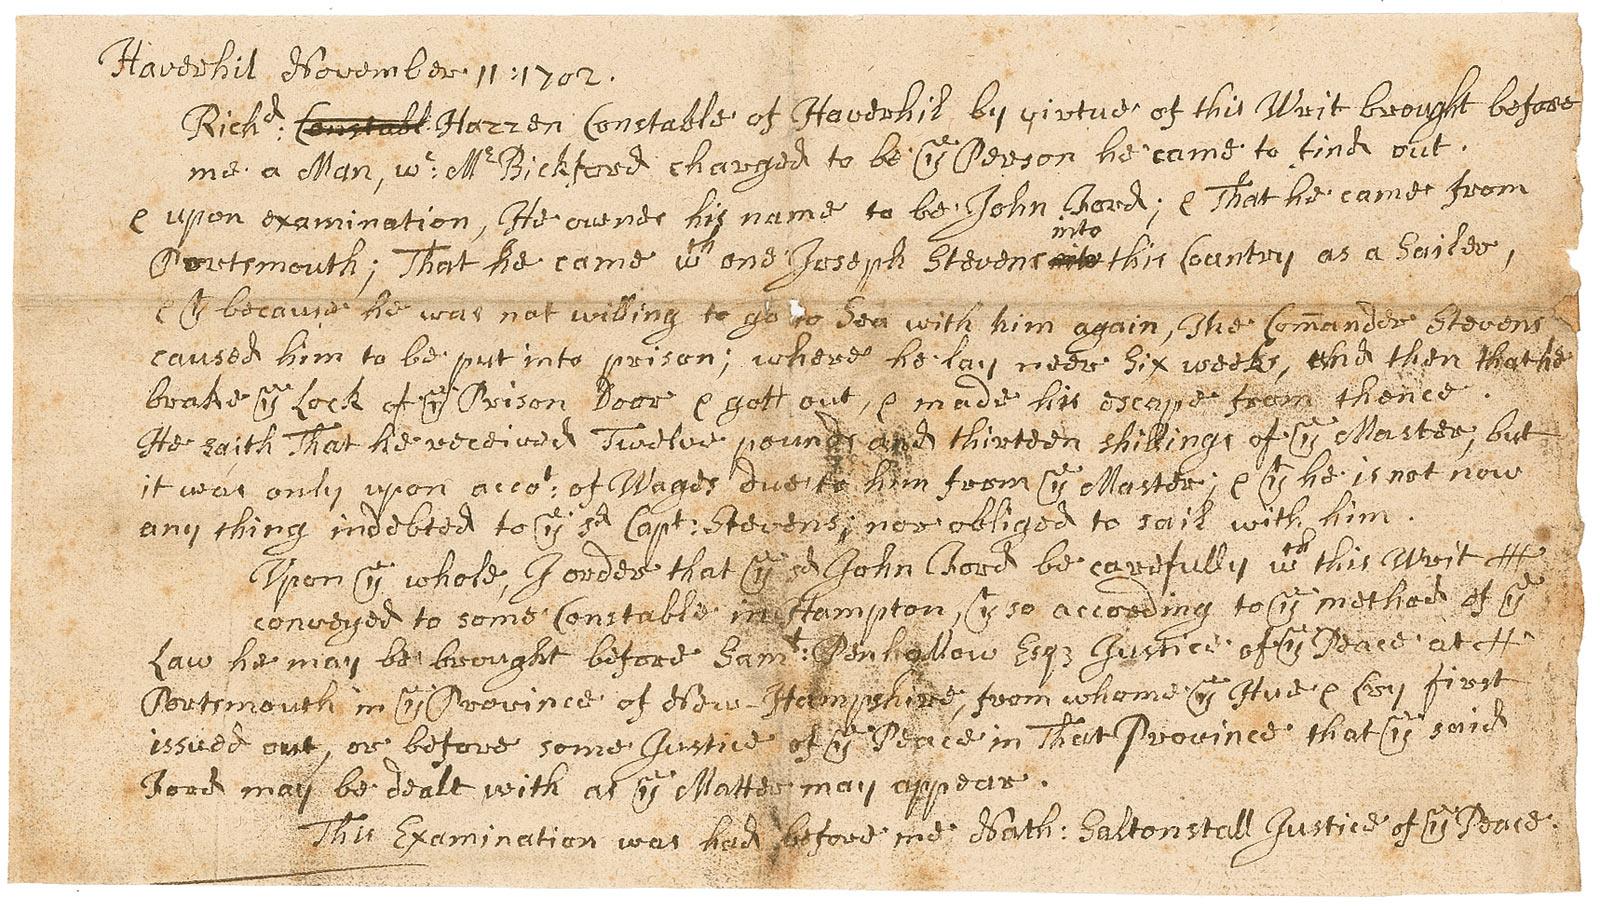 Haverhil November 11: 1702.
Richd: Constabl Hazzen Constable of Haverhil by virtue of this Writ brought before
me a Man, wc: Mr Bickford charged to be ye Person he came to find out.
& upon examination, He ownes his name to be John Ford; & That he came from
Portsmouth; That he came wth one Joseph Stevens into this Country as a Sailer,
& yt because he was not willing to go to Sea with him again, The Com̄ander Stevens
caused him to be put into prison; where he lay neer Six weeks, And then that he
brake ye Lock of ye Prison Door & gott out, & made his escape from thence.
He saith That he received Twelve pounds and thirteen shillings of ye Master, but
it was only upon accot: of Wages due to him from ye Master; & yt he is not now
any thing indebted to ye sd Capt: Stevens; nor obliged to sail with him.
Upon ye whole, I order that ye sd John Ford be carefully wth this Writ
conveyed to some Constable in Hampton, yt so according to ye method of ye
Law he may be brought before Saml: Penhallow Esqz Justice of ye Peace at
Portsmouth in ye Province of New-Hampshire, from whome ye Hue & Cry first
issued out, or before some Justice of ye Peace in That Province that ye said
Ford may be dealt with as ye Matter may appear.
This Examination was had before me Nath: Saltonstall Justice of ye Peace.